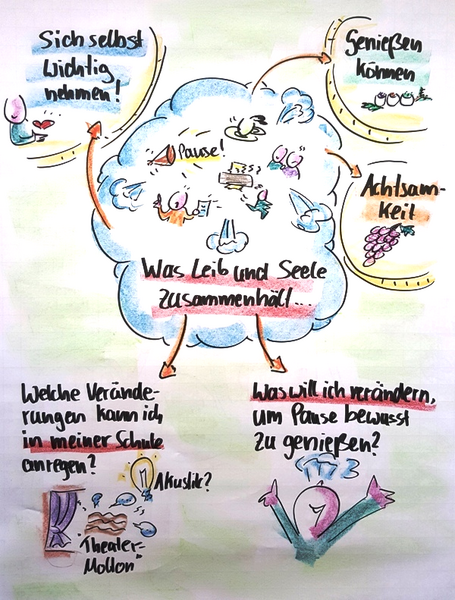 Sich selbst
wichtig
nehmen!
Genießen
können
Pause!
Achtsam-
keit
Was Leib und Seele
zusammenhält...
Welche Verände-
rungen kann ich
in meiner Schule
anregen?
Akustik?
Theater-
Molton
Was will ich verändern,
um Pause bewusst
zu genießen?